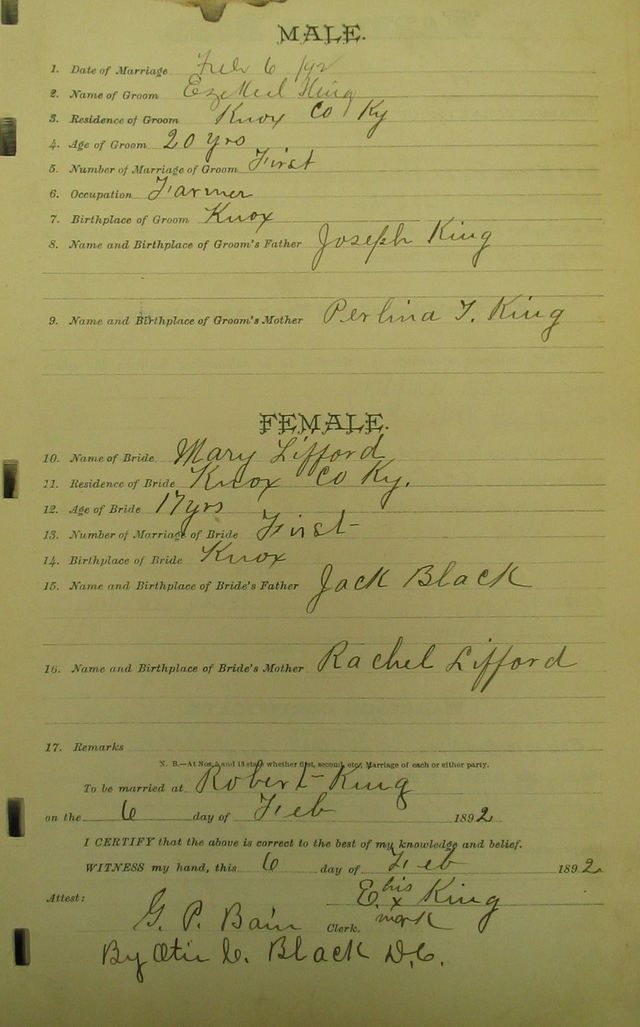 MALE.
1. Date of Marriage Feb 6 /92
2. Name of Groom Ezekiel King
3. Residence of Groom Knox Co Ky
4. Age of Groom 20 yrs
5. Number of Marriage of Groom First
6. Occupation Farmer
7. Birthplace of Groom Knox
8. Name and Birthplace of Groom's Father Joseph King
9. Name and Birthplace of Groom's Mother Perlina T. King
FEMALE.
10. Name of Bride Mary Lifford
11. Residence of Bride Knox Co Ky.
12. Age of Bride 17 yrs
13. Number of Marriage of Bride First
14. Birthplace of Bride Knox
15. Name and Birthplace of Bride's Father Jack Black
16. Name and Birthplace of Bride's Mother Rachel Lifford
17. Remarks
N. B.—At Nos. 5 and 13 state whether first, second, etc., Marriage of each or either party.
To be married at Robert King
on the 6 day of Feb 1892
I CERTIFY that the above is correct to the best of my knowledge and belief.
WITNESS my hand, this 6 day of Feb 1892
his
Attest: E. x King
mark
G. P. Bain Clerk.
By C. Black D.C.